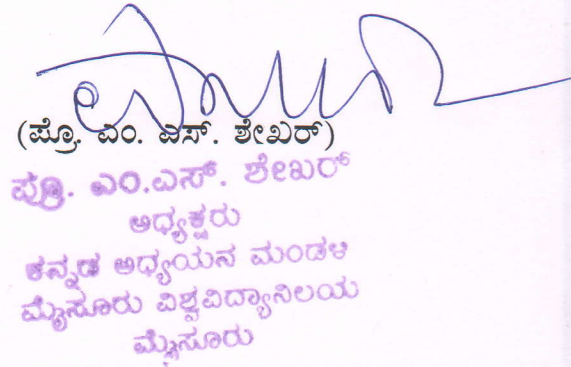 (ಪ್ರೊ. ಎಂ. ಎಸ್. ಶೇಖರ್)
ಪ್ರೊ. ಎಂ.ಎಸ್. ಶೇಖರ್
ಅಧ್ಯಕ್ಷರು
ಕನ್ನಡ ಅಧ್ಯಯನ ಮಂಡಳಿ
ಮೈಸೂರು ವಿಶ್ವವಿದ್ಯಾನಿಲಯ
ಮೈಸೂರು